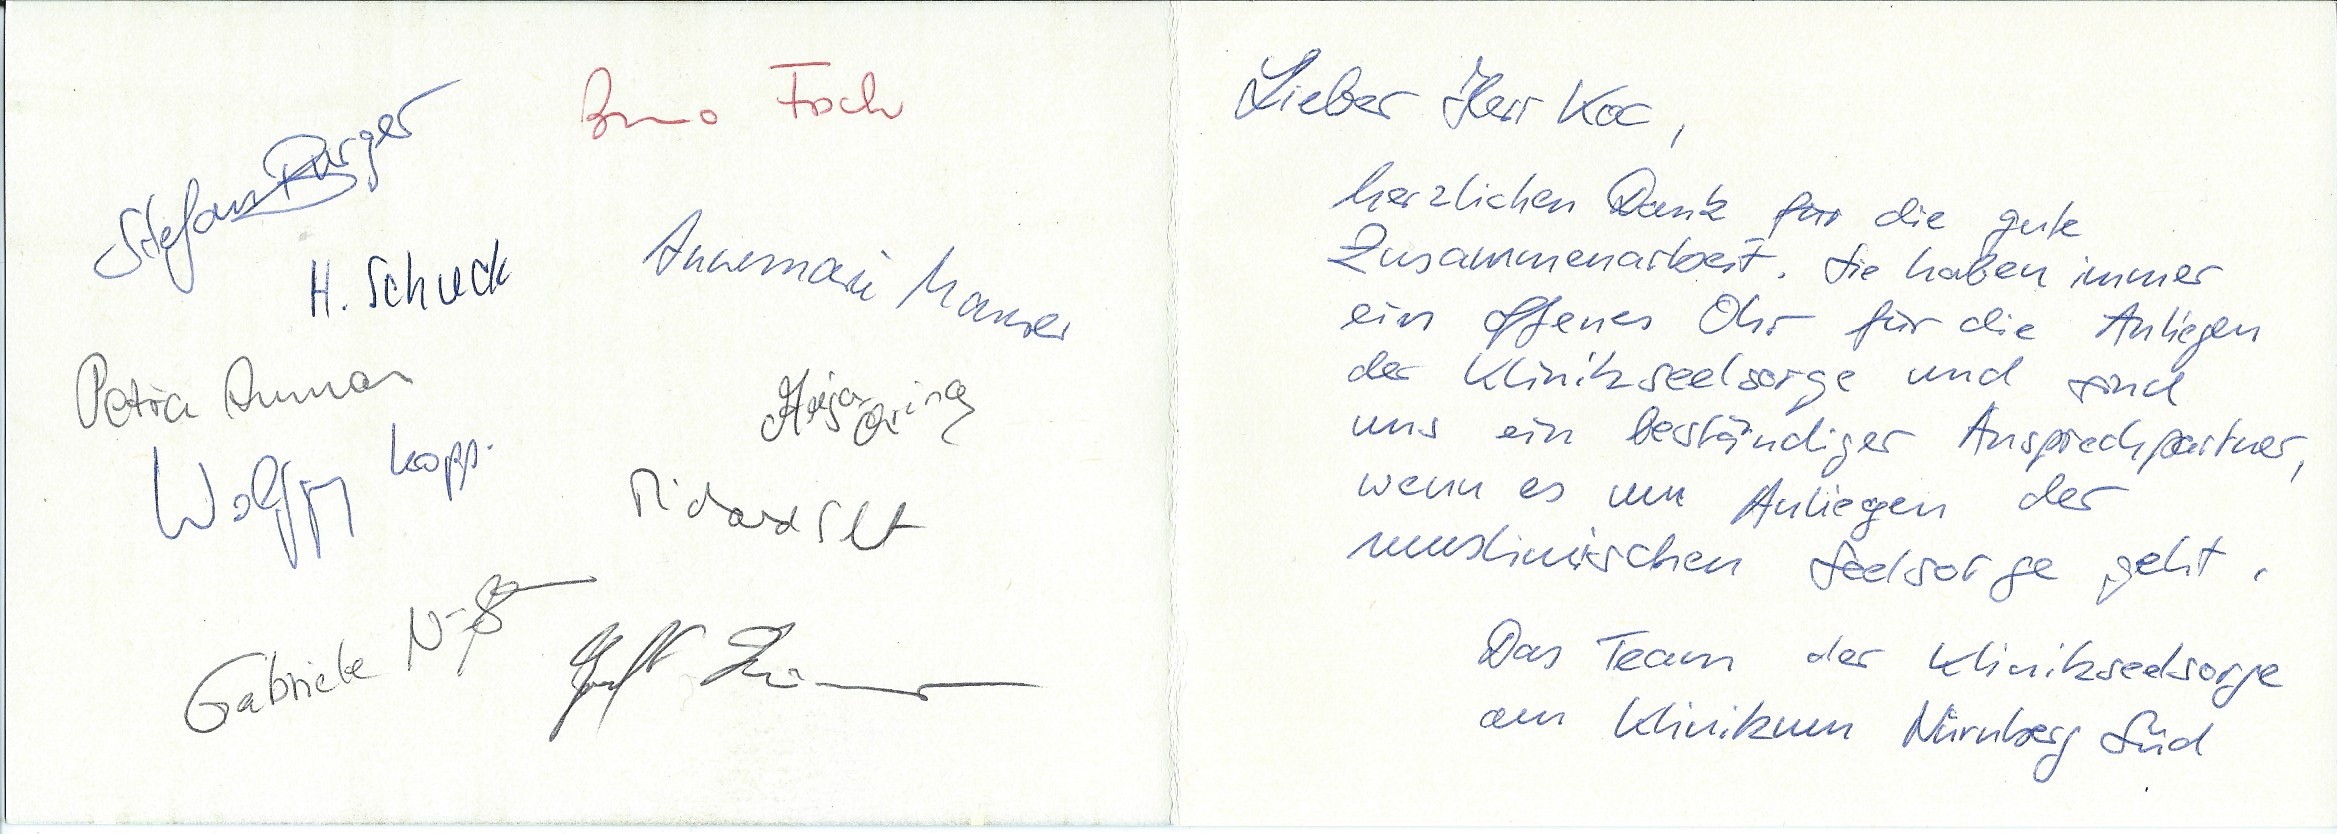 Stefan Burger
Bruno Fisch
H. Schuck
Annemarie
Petra
Wolfgang Kopp.
Richard
Gabriele
Lieber Herr Koc,
herzlichen Dank für die gute
Zusammenarbeit. Sie haben immer
ein offenes Ohr für die Anliegen
der Klinikseelsorge und sind
uns ein beständiger Ansprechpartner,
wenn es um Anliegen der
muslimischen Seelsorge geht.
Das Team der Klinikseelsorge
am Klinikum Nürnberg Süd